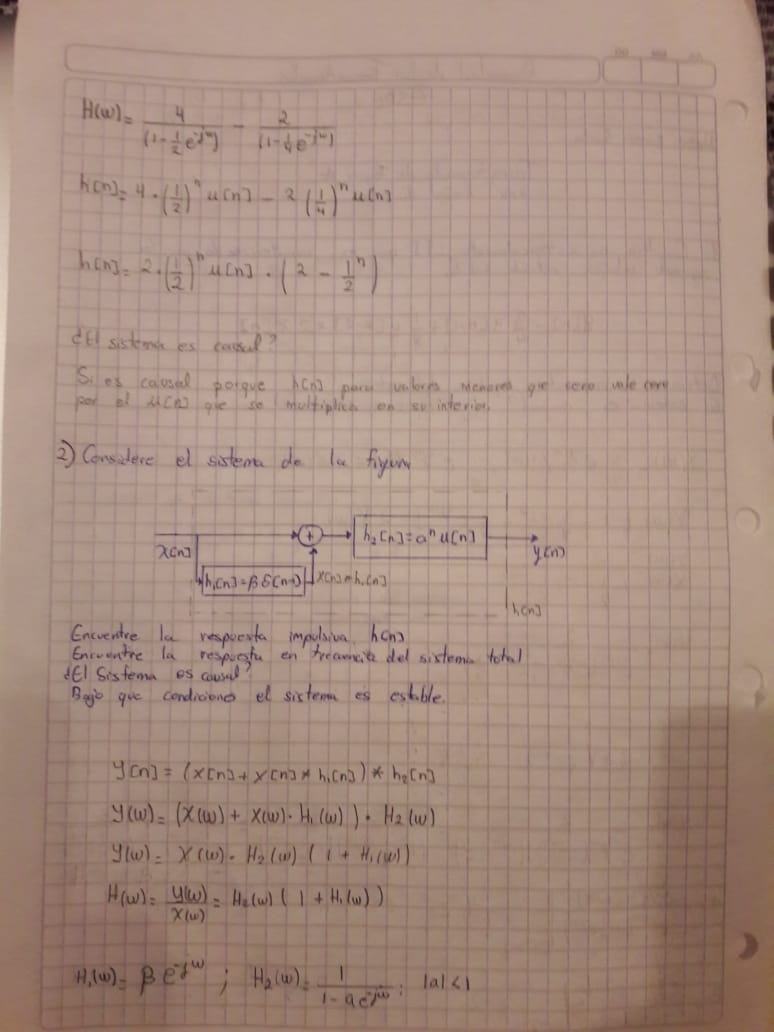 H(ω)= 4/(1-1/2 e^-jω) - 2/(1-1/4 e^-jω)
h[n]= 4·(1/2)^n u[n] - 2(1/4)^n u[n]
h[n]= 2·(1/2)^n u[n] · (2 - 1/2^n)
¿El sistema es causal?
Si es causal porque h[n] para valores menores que cero vale cero
por el u[n] que se multiplica en su interior.
2) Considere el sistema de la figura
x[n]
+
h2[n]=a^n u[n]
y[n]
h1[n]=β δ[n-1]
x[n]*h1[n]
h[n]
Encuentre la respuesta impulsiva h[n]
Encuentre la respuesta en frecuencia del sistema total
¿El Sistema es causal?
Bajo que condiciones el sistema es estable.
y[n] = (x[n] + x[n] * h1[n]) * h2[n]
Y(ω)= (X(ω) + X(ω)· H1(ω)) · H2(ω)
Y(ω)= X(ω)· H2(ω) (1 + H1(ω))
H(ω)= Y(ω)/X(ω) = H2(ω) (1 + H1(ω))
H1(ω)= β e^-jω ; H2(ω)= 1/(1-a e^-jω) ; |a|<1